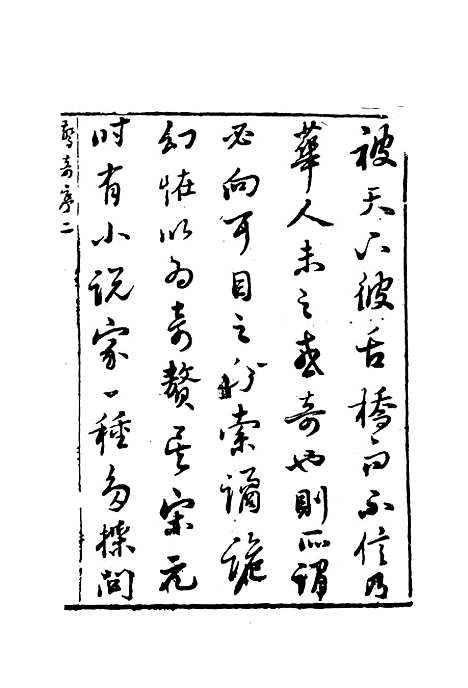 被天下彼舌撟而不信乃
華人未之或奇也則所謂
必向耳目之外索譎詭
幻怪以為奇贅矣宋元
時有小說家一種多採閭
驚奇序二